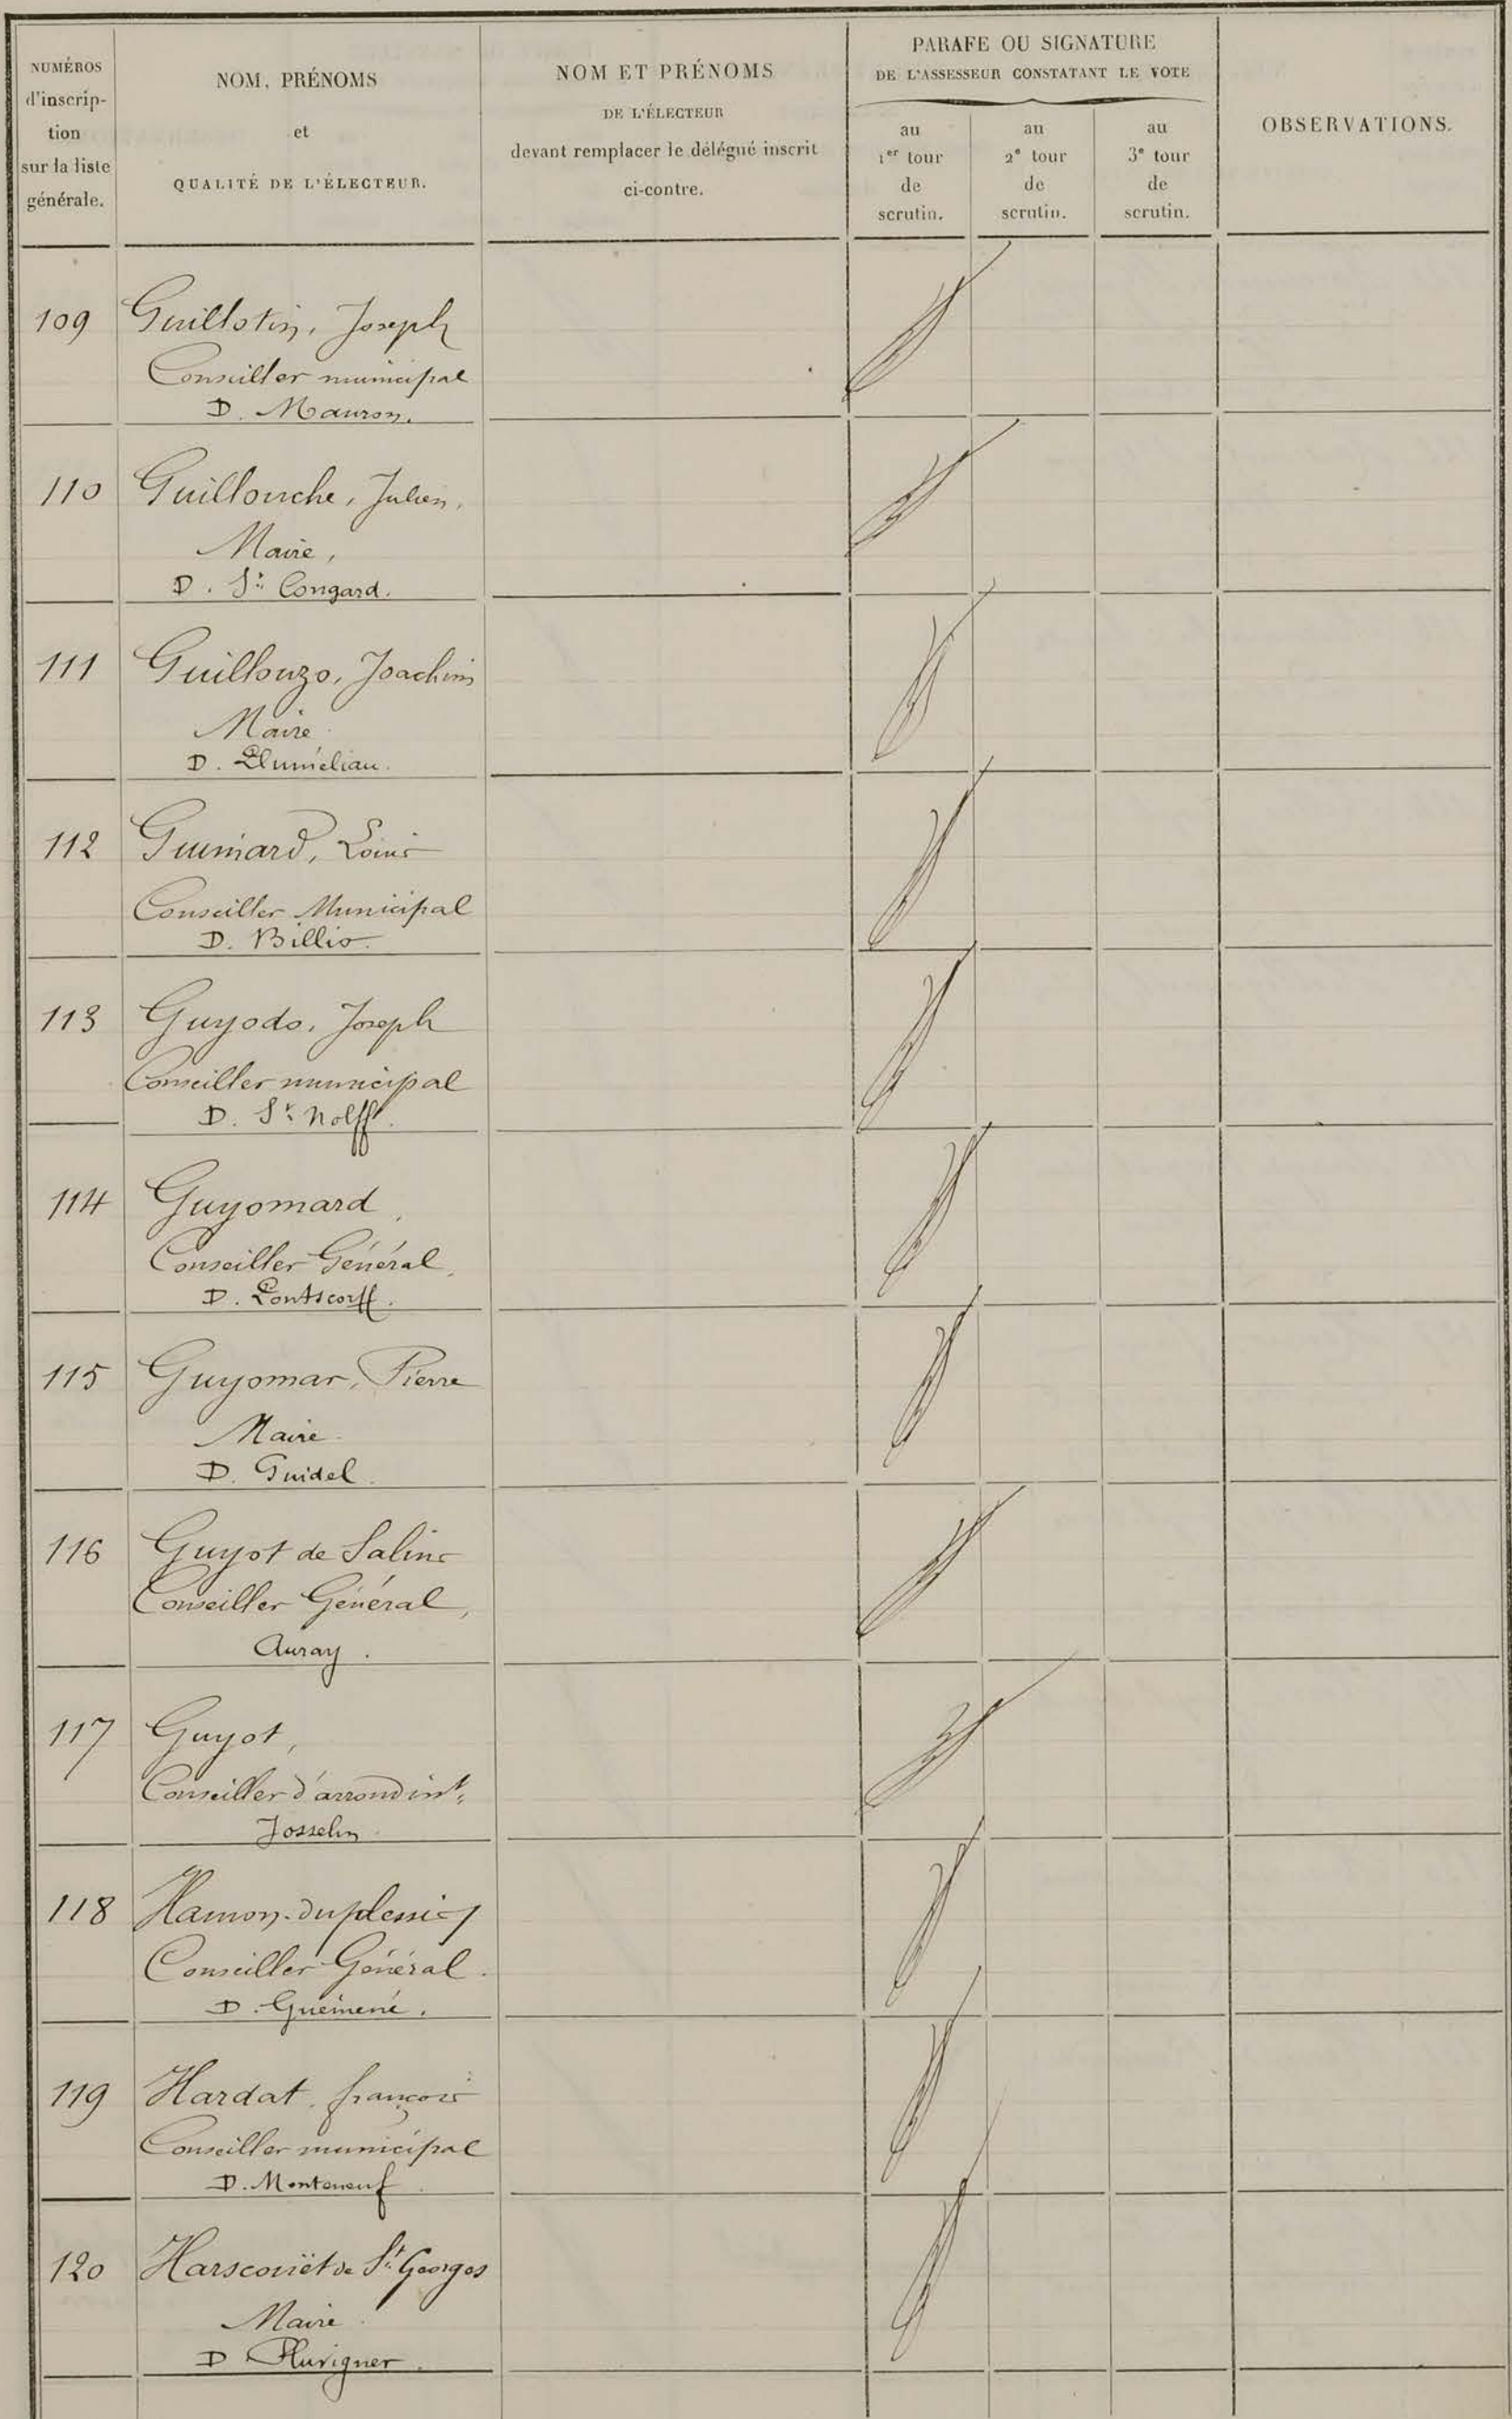 NUMÉROS
d'inscrip-
tion
sur la liste
générale.
NOM, PRÉNOMS
et
QUALITÉ DE L'ÉLECTEUR.
NOM ET PRÉNOMS
DE L'ÉLECTEUR
devant remplacer le délégué inscrit
ci-contre.
PARAFE OU SIGNATURE
DE L'ASSESSEUR CONSTATANT LE VOTE
au
1er tour
de
scrutin.
au
2e tour
de
scrutin.
au
3e tour
de
scrutin.
OBSERVATIONS.
109 Guillotin, Joseph
Conseiller municipal
D. Mauron.
110 Guillouche, Julien,
Maire,
D. St Congard.
111 Guillouzo, Joachim
Maire
D. Pluméliau.
112 Guimard, Louis
Conseiller Municipal
D. Billio.
113 Guyodo, Joseph
Conseiller municipal
D. St Nolff.
114 Guyomard,
Conseiller Général,
D. Pontscorff.
115 Guyomar, Pierre
Maire
D. Guidel.
116 Guyot de Salins
Conseiller Général,
Auray.
117 Guyot,
Conseiller d'arrondint,
Josselin
118 Hamon-duplessis
Conseiller Général.
D. Guémené.
119 Hardat, françois
Conseiller municipal
D. Monteneuf.
120 Harscouët de St Georges
Maire.
D Pluvigner.